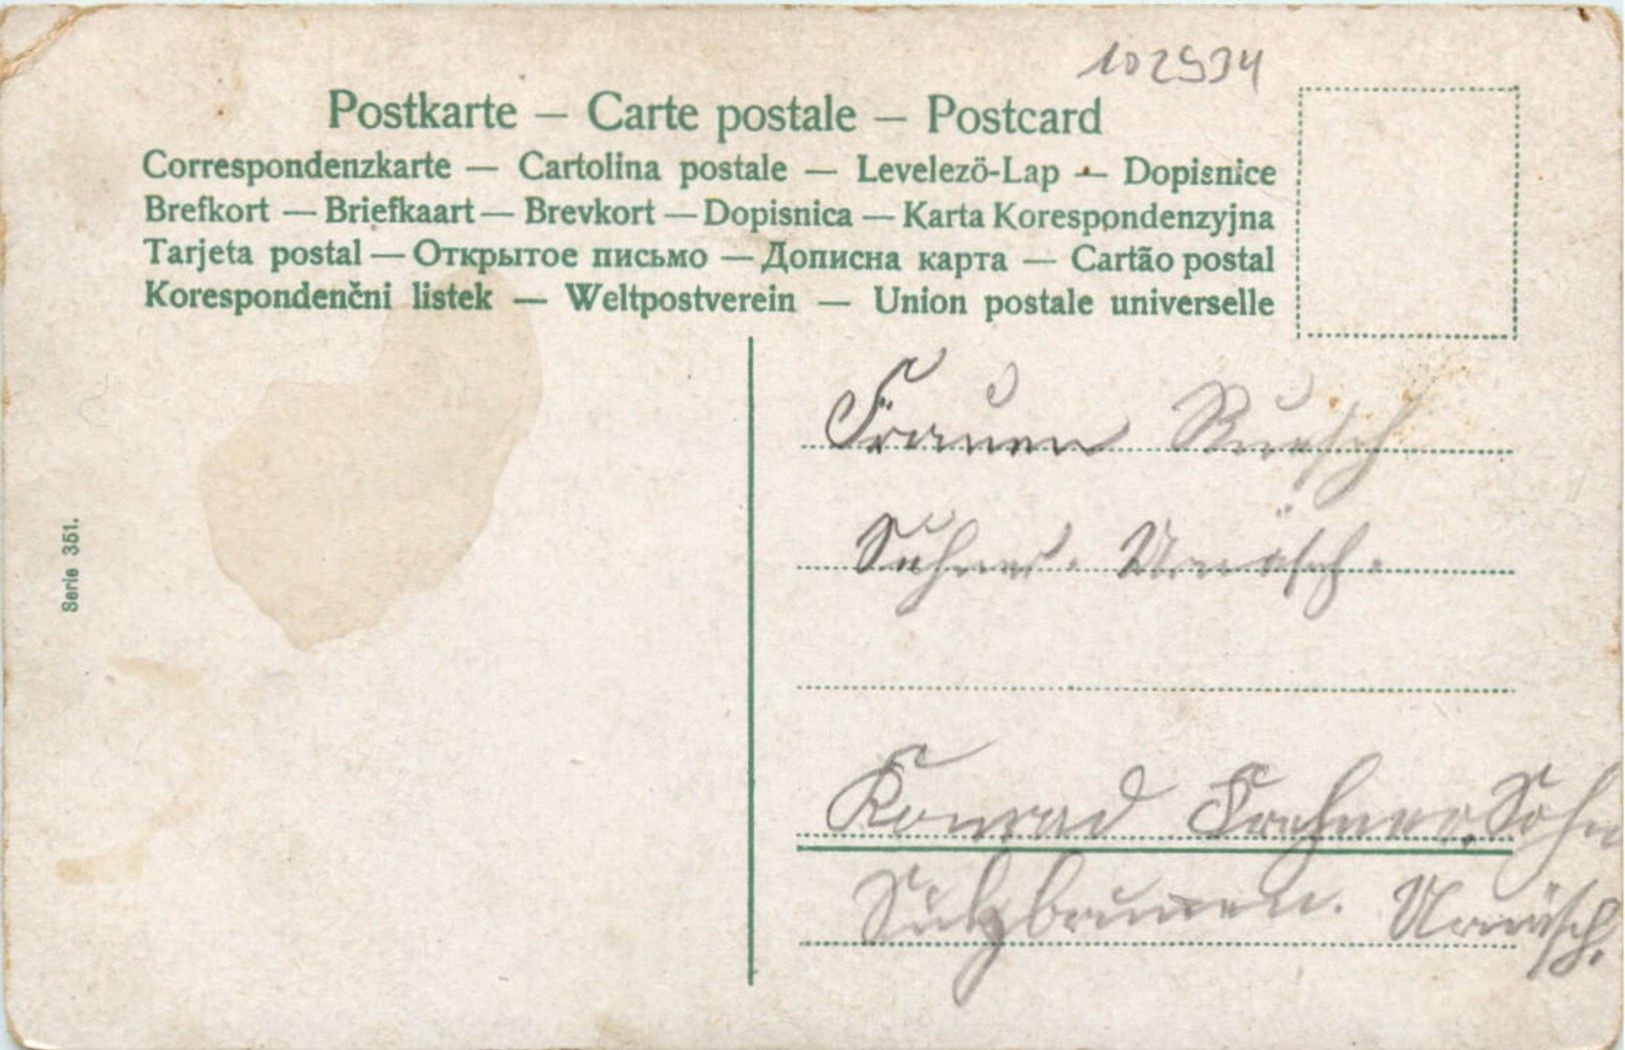 102934
Postkarte — Carte postale — Postcard
Correspondenzkarte — Cartolina postale — Levelezö-Lap — Dopisnice
Brefkort — Briefkaart — Brevkort — Dopisnica — Karta Korespondenzyjna
Tarjeta postal — Открытое письмо — Дописна карта — Cartão postal
Korespondenčni listek — Weltpostverein — Union postale universelle
Serie 351.
Frauen
Urnäsch.
Konrad Frehner, Sohn
Sulzbrunnen. Urnäsch.